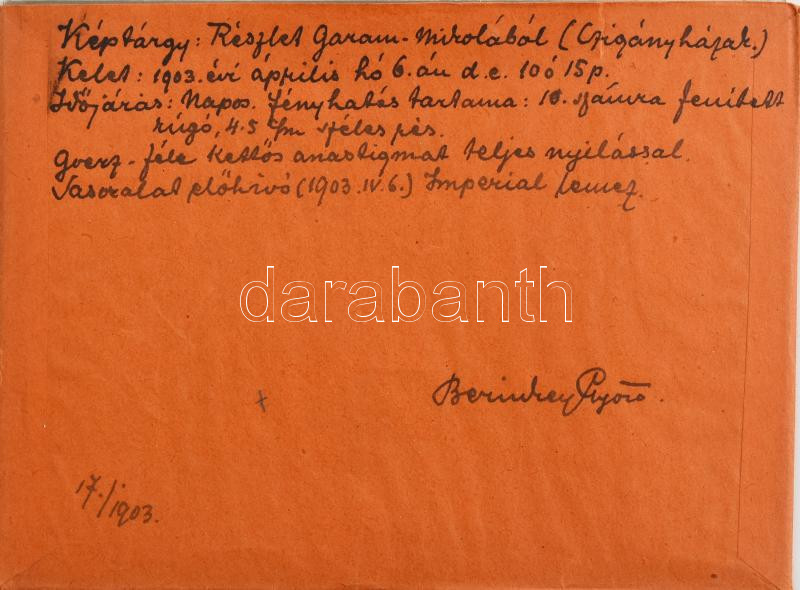 Képtárgy: Részlet Garam-Mikolából (Czigányházak.)
Kelet: 1903. évi április hó 6.án d.e. 10ó 15p.
Időjárás: Napos. Fényhatás tartama: 10. számra feszített
rúgó, 4.5 c/m széles rés.
Goerz-féle kettős anastigmat teljes nyilással.
Vasoxalat előhivó (1903.IV.6.) Imperial lemez.
darabanth
Berinkey Győző.
x
17./1903.